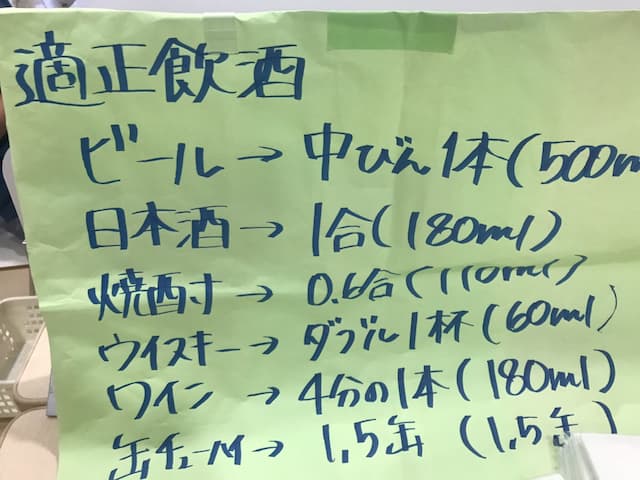 適正飲酒
ビール→中びん1本(500m
日本酒→1合(180ml)
焼酎→0.6合(110ml)
ウイスキー→ダブル1杯(60ml)
ワイン→4分の1本(180ml)
缶チューハイ→1,5缶(1,5缶)